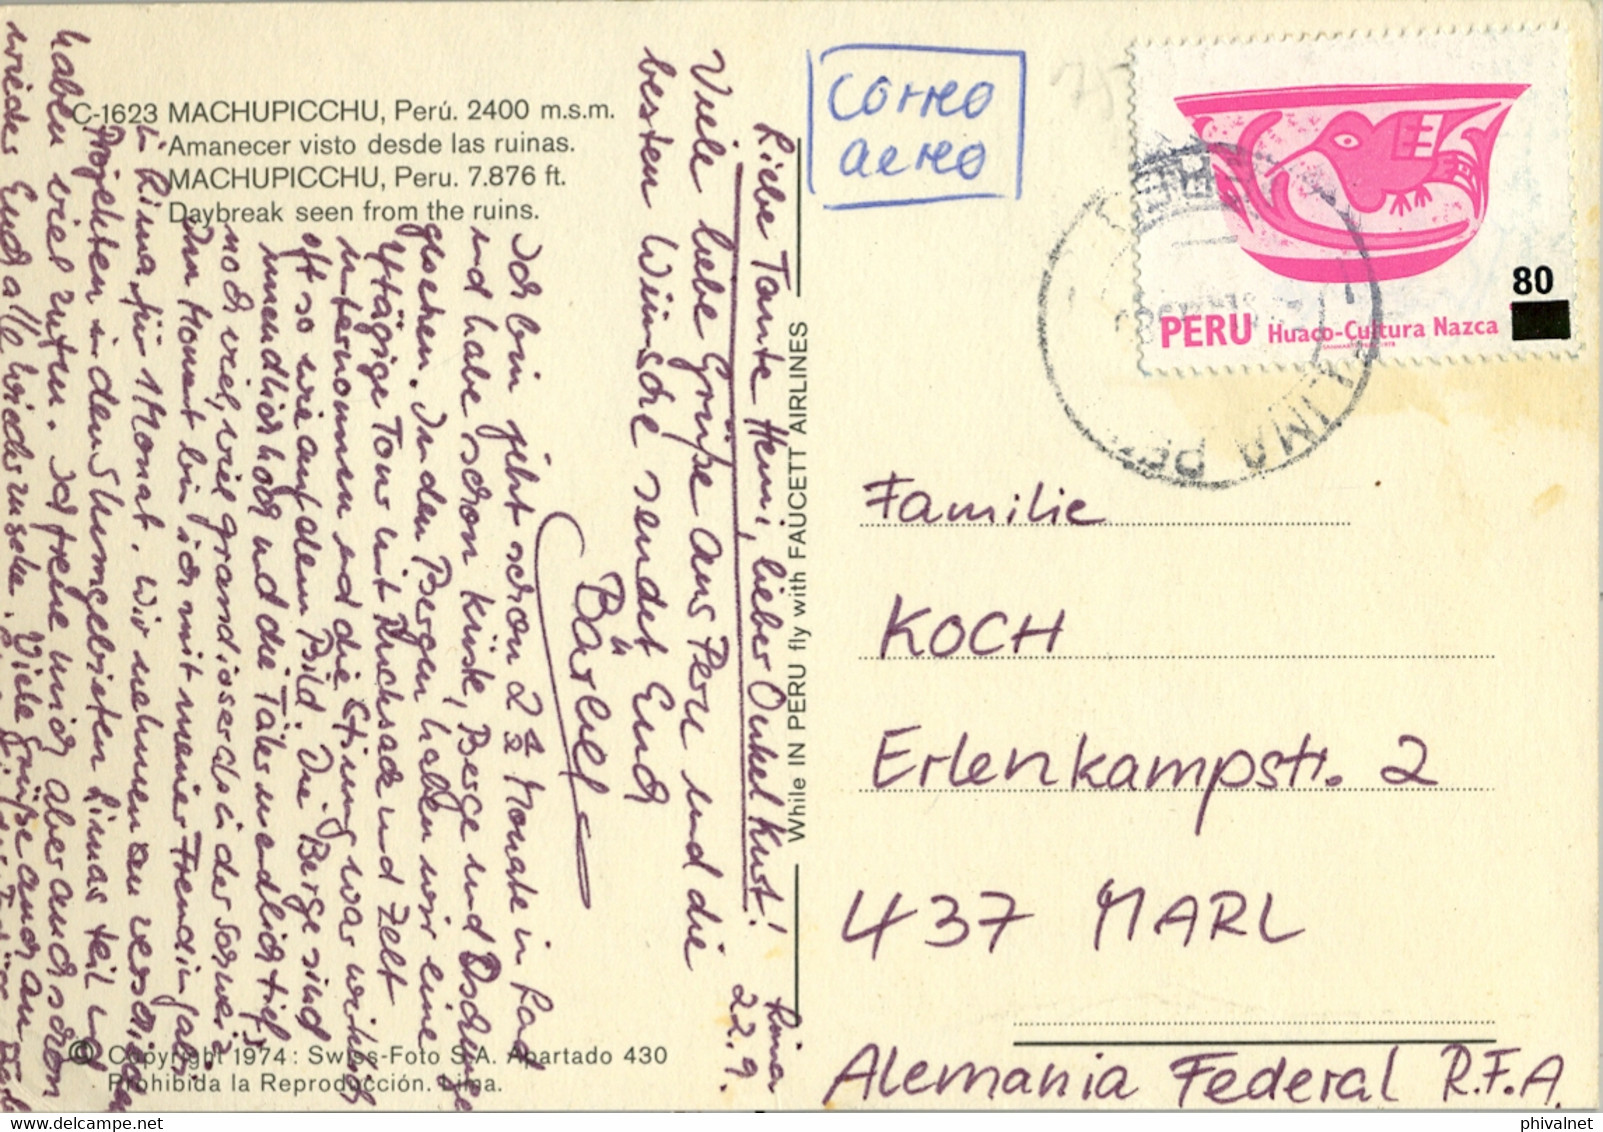 C-1623 MACHUPICCHU, Perú. 2400 m.s.m.
Amanecer visto desde las ruinas.
MACHUPICCHU, Peru. 7.876 ft.
Daybreak seen from the ruins.
Lima
22.9.
Liebe Tante Henni, lieber Onkel Kurt!
Viele liebe Grüße aus Peru und die
besten Wünsche sendet Euch
Bärbel
Ich bin jetzt schon 2 1/2 Monate in Lad
und habe schon Küste, Berge und Dschungel
gesehen. In den Bergen haben wir eine
4tägige Tour mit Rucksack und Zelt
unternommen und die Stimmung war wirklich
oft so wie auf dem Bild. Die Berge sind
unendlich hoch und die Täler unendlich tief,
noch viel, viel grandioser als in der Schweiz
Den Monat bin ich mit meiner Freundin
in Lima für 1 Monat. Wir nehmen an verschiedenen
Projekten in den Slumgebieten Limas teil und
haben viel zu tun. Ich freue mich aber auch schon
wieder Euch alle wiederzusehen. Viele Grüße auch an
While IN PERU fly with FAUCETT AIRLINES
© Copyright 1974: Swiss-Foto S.A. Apartado 430
Prohibida la Reproducción. Lima.
correo
aereo
80
PERU Huaco-Cultura Nazca
LIMA PERU
Familie
KOCH
Erlenkampstr. 2
437 MARL
Alemania Federal R.F.A.
www.delcampe.net
phivalnet